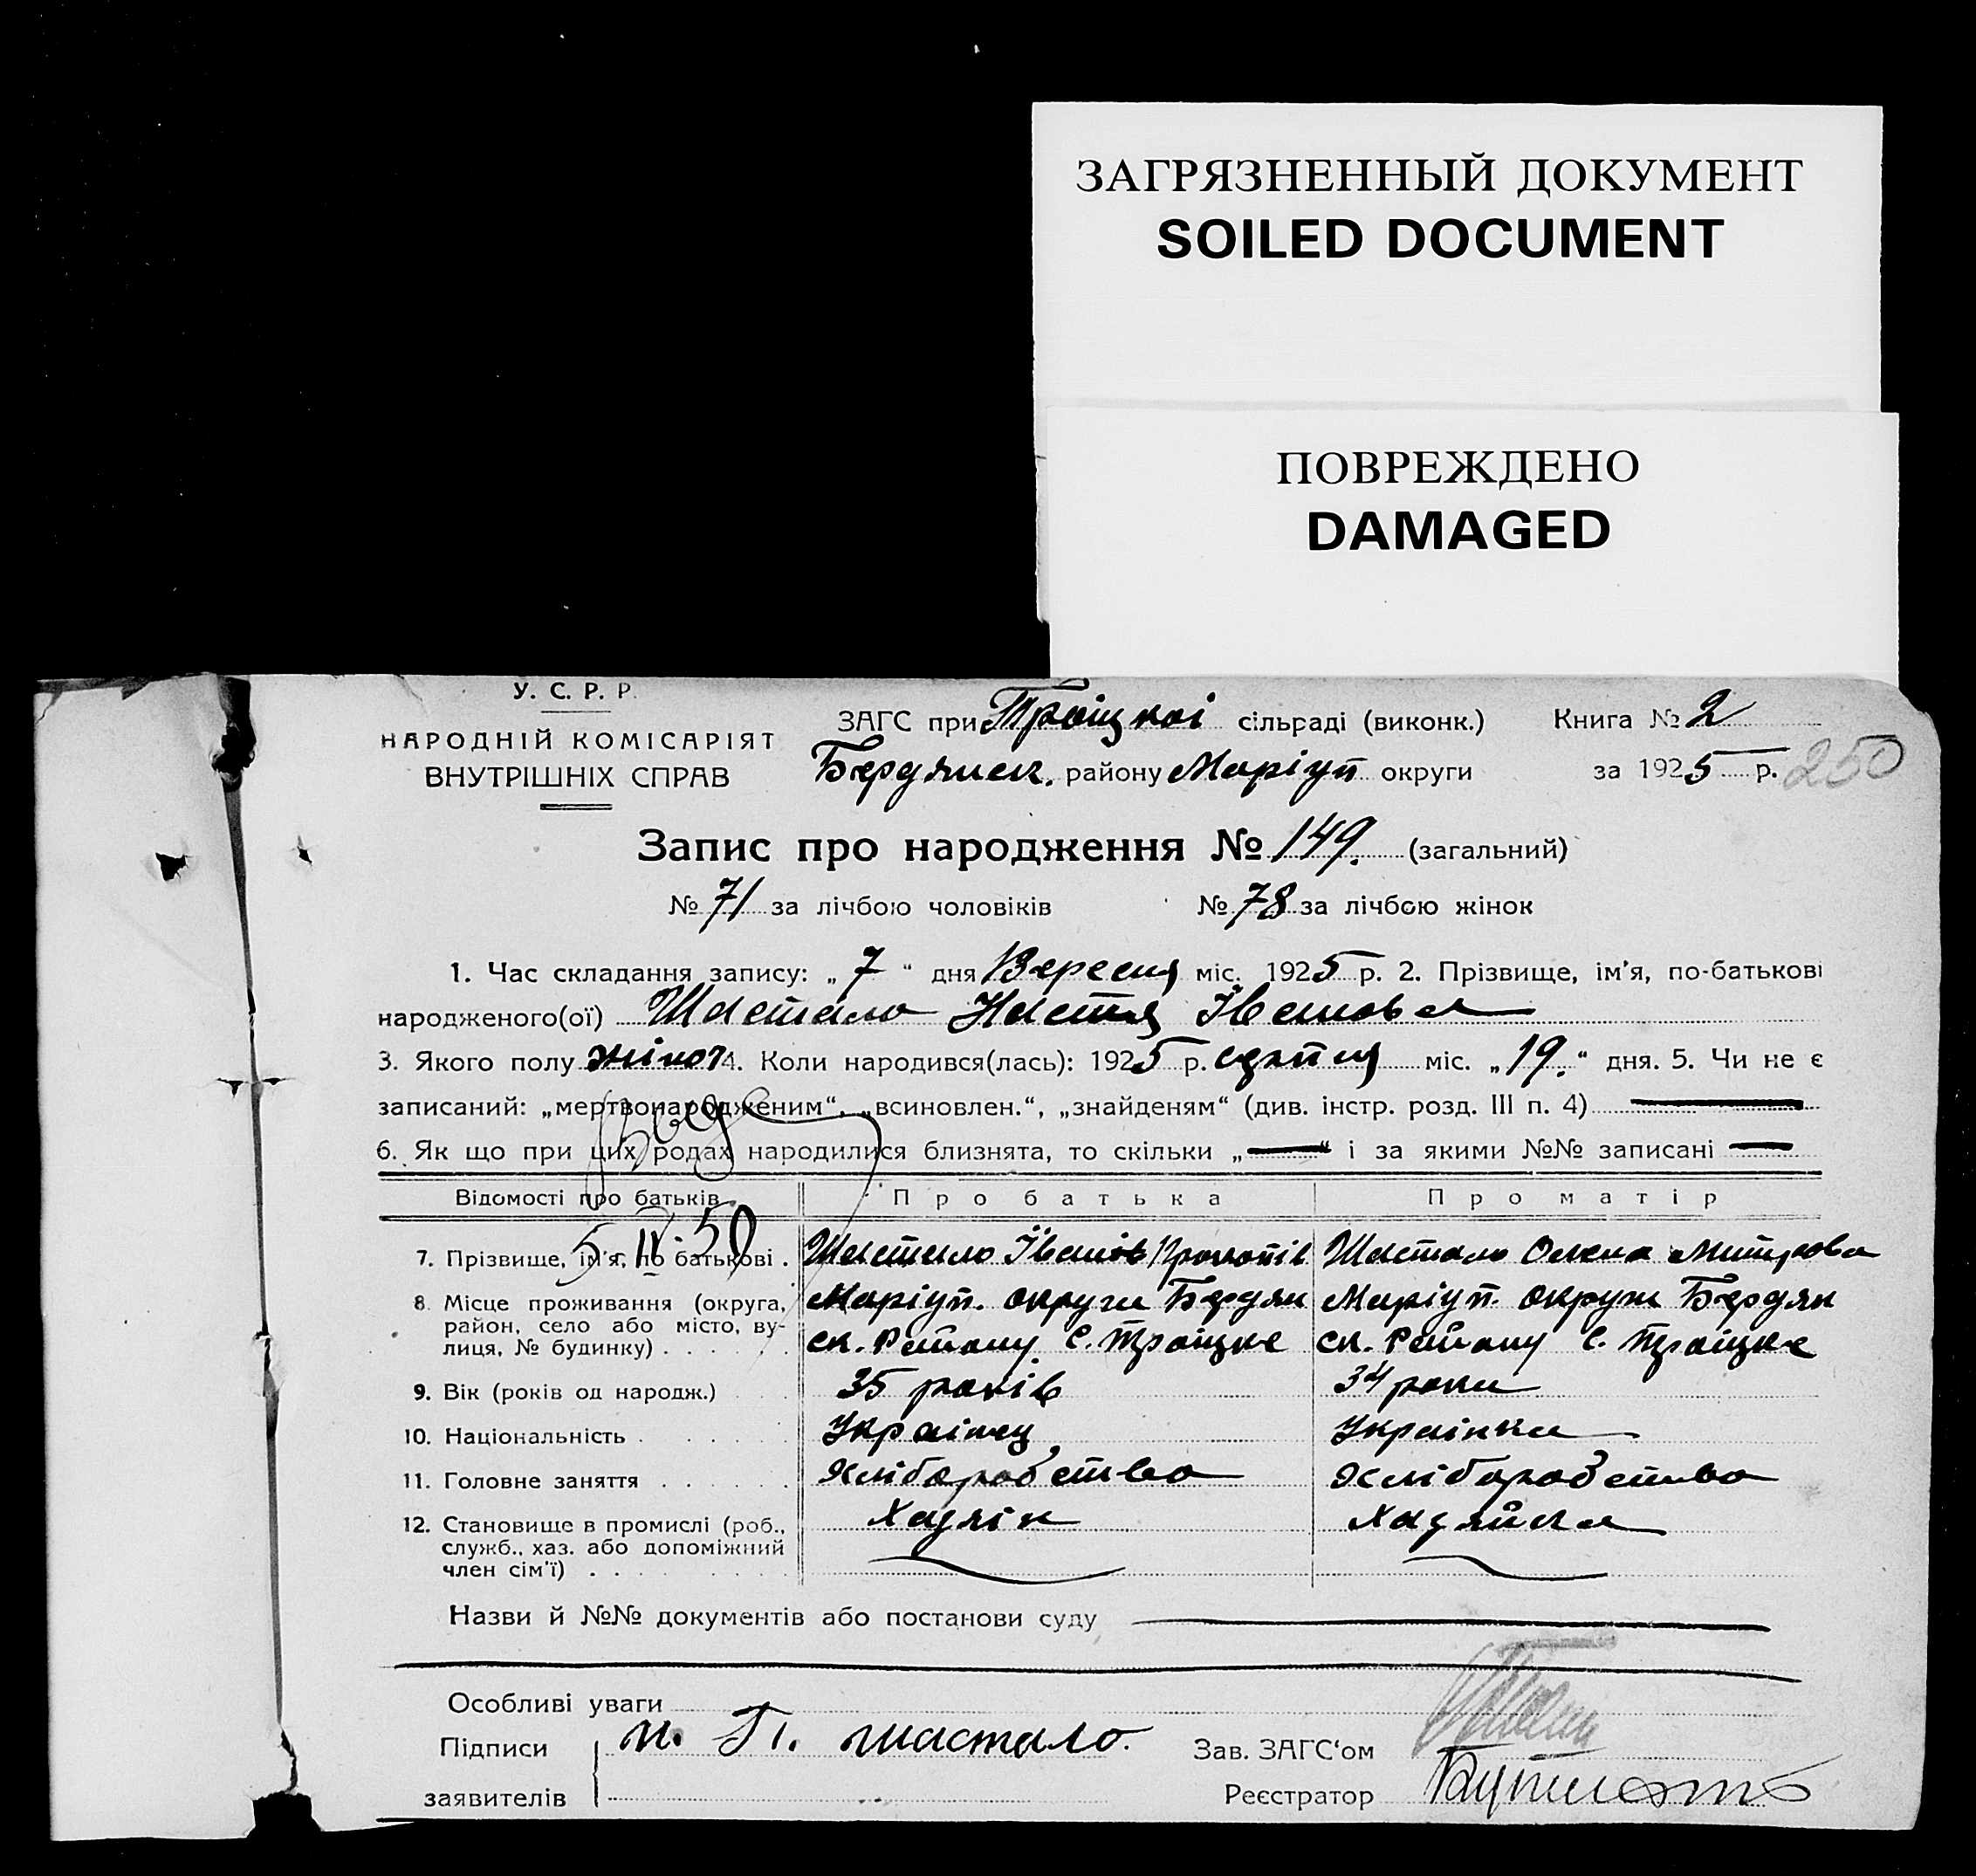 ЗАГРЯЗНЕННЫЙ ДОКУМЕНТ
SOILED DOCUMENT
ПОВРЕЖДЕНО
DAMAGED
У. С. Р. Р.
НАРОДНІЙ КОМІСАРІЯТ
ВНУТРІШНІХ СПРАВ
ЗАГС при Троіцкоі сільраді (виконк.) Книга № 2
Бердянск. району Маріуп округи за 1925 р. 250
Запис про народження № 149. (загальний)
№ 71 за лічбою чоловіків № 78 за лічбою жінок
1. Час складання запису: „7“ дня Вересня міс. 1925 р. 2. Прізвище, ім'я, по-батькові
народженого(ої) Шастало Настя Іванова
3. Якого полу жіноч 4. Коли народився(лась): 1925 р. серпня міс. „19.“ дня. 5. Чи не є
записаний: „мертвонародженим“, „всиновлен.“, „знайденям“ (див. інстр. розд. III п. 4)
6. Як що при цих родах народилися близнята, то скільки „—“ і за якими №№ записані —
Відомості про батьків Про батька Про матір
5 IV 50
7. Прізвище, ім'я, по батькові . Шастало Іванов Прокопів Шастало Олена Митрова
8. Місце проживання (округа, Маріуп. округи Бердян Маріуп. округи Бердян
район, село або місто, ву- ск. Району С. Троіцке ск. Району С. Троіцке
лиця, № будинку) . . . . . .
9. Вік (років од народж.) 35 років 34 роки
10. Національність . Украінец Украінка
11. Головне заняття . . . . . . Хліборобство Хліборобство
12. Становище в промислі (роб., Хазяін Хазяйка
служб., хаз. або допоміжний
член сім'ї) . . . .
Назви й №№ документів або постанови суду
Особливі уваги
Підписи И. П. шастало. Зав. ЗАГС'ом
заявителів Реєстратор